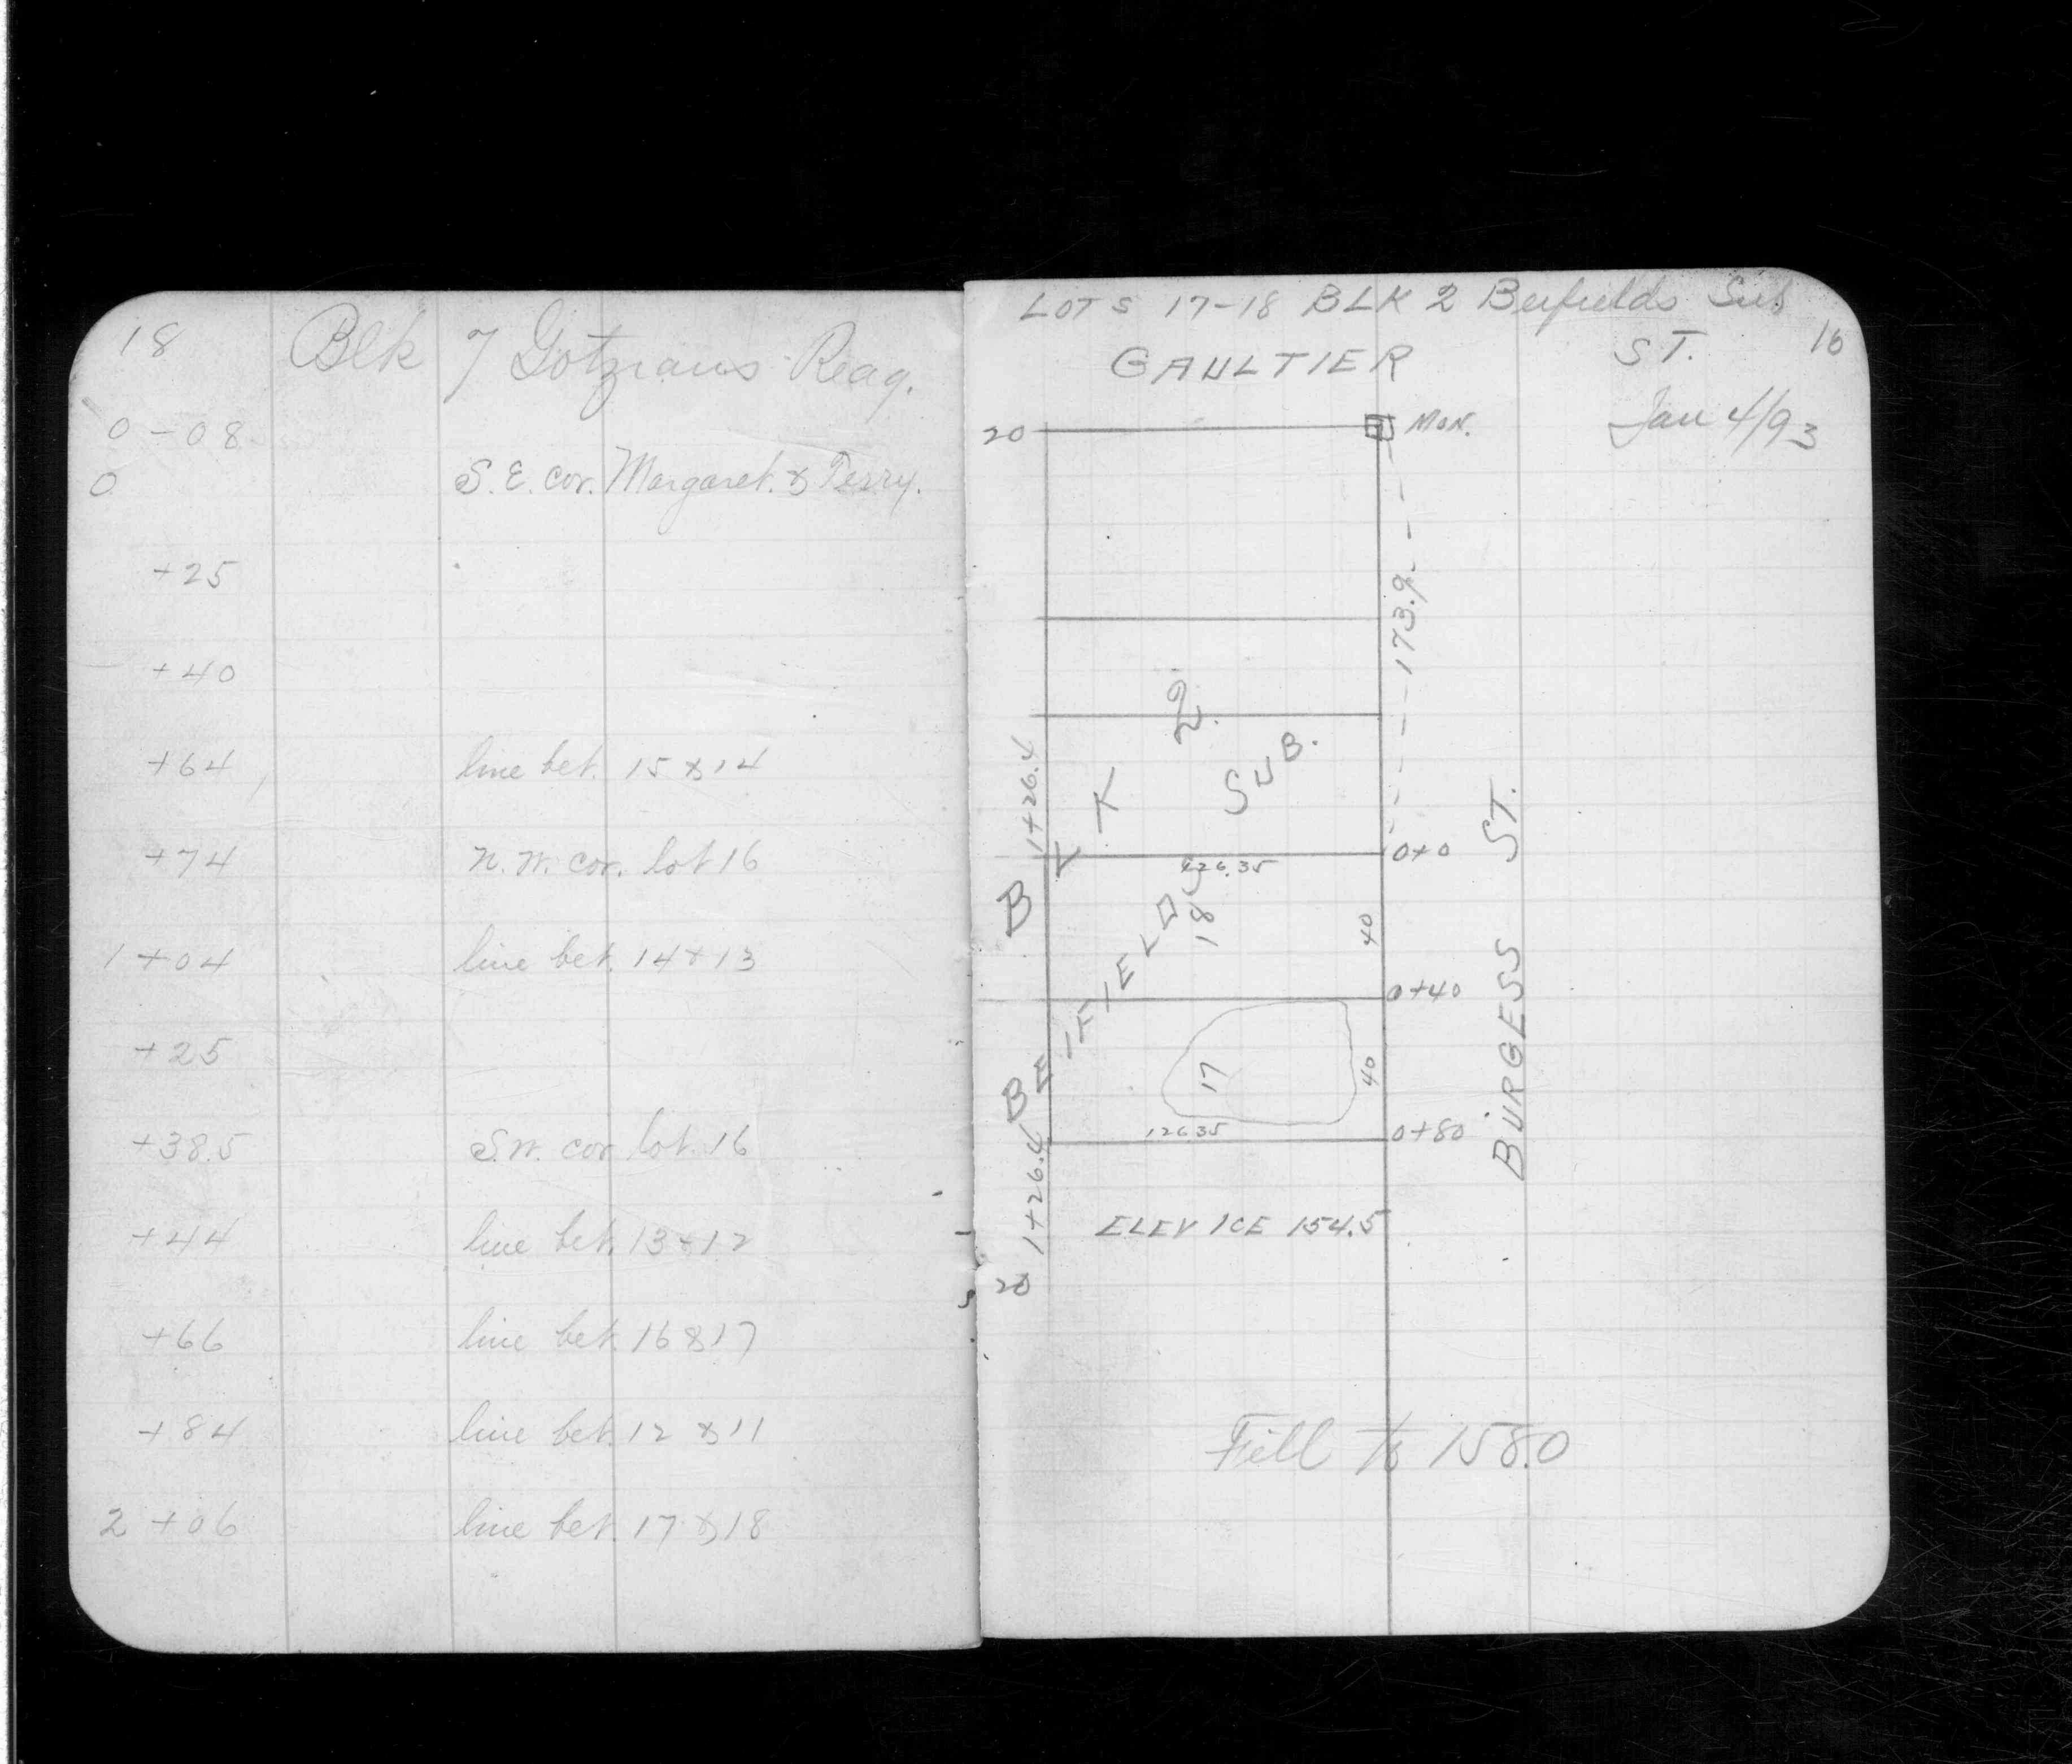 18 Blk 7 Gotzians Reag.
0 - 08
0 S.E. cor. Margaret. & Terry.
+25
+40
+64 line bet. 15 & 14
+74 N.W. cor. lot 16
1 +04 line bet. 14 & 13
+25
+38.5 S.W. cor lot. 16
+44 line bet. 13 & 12
+66 line bet. 16 & 17
+84 line bet. 12 & 11
2 +06 line bet. 17 & 18
LOTS 17-18 BLK 2 Beifields Sub
16
GAULTIER ST.
Jan 4/93
20
MON.
173.9
BLK 2
BEIFIELDS SUB.
1+26.4
0+0
126.35
18
40
0+40
17
40
126.35
0+80
1+26.4
20
BURGESS ST.
ELEV ICE 154.5
Fill to 158.0